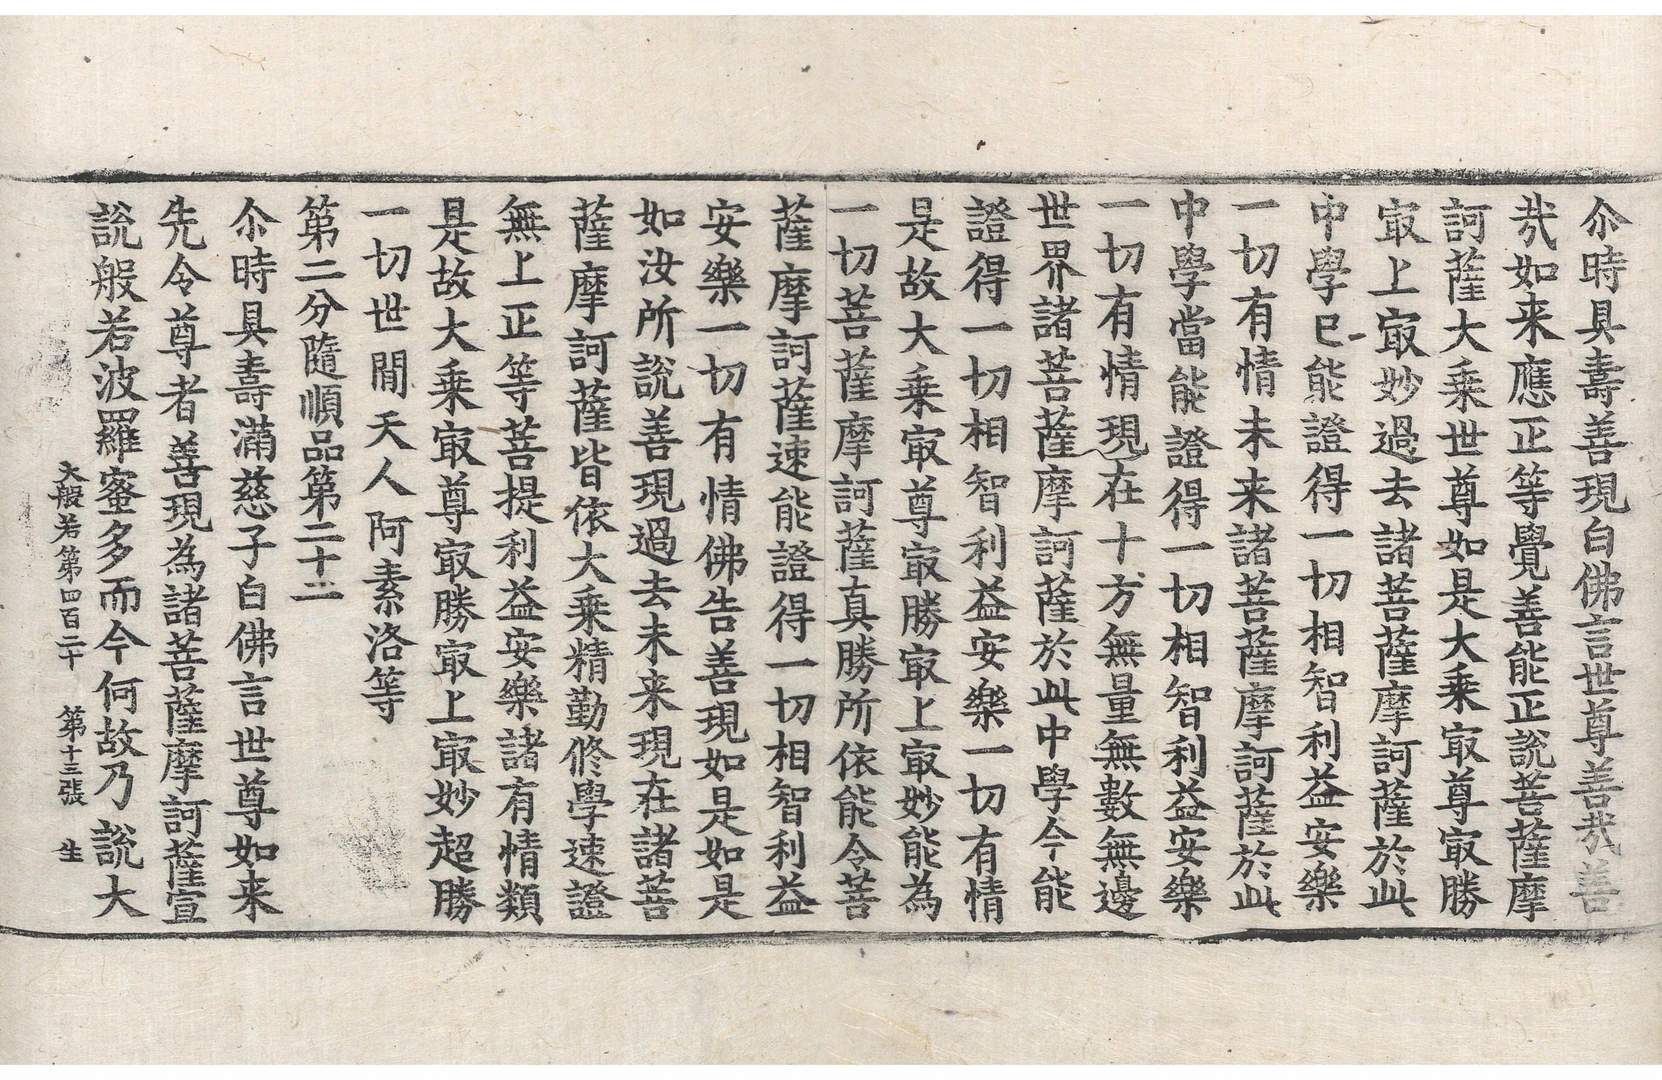 尒時具壽善現白佛言世尊善哉善
哉如来應正等覺善能正說菩薩摩
訶薩大乗世尊如是大乗㝡尊㝡勝
㝡上㝡妙過去諸菩薩摩訶薩於此
中學已能證得一切相智利益安樂
一切有情未来諸菩薩摩訶薩於此
中學當能證得一切相智利益安樂
一切有情現在十方無量無數無邊
世界諸菩薩摩訶薩於此中學今能
證得一切相智利益安樂一切有情
是故大乗㝡尊㝡勝㝡上㝡妙能為
一切菩薩摩訶薩真勝所依能令菩
薩摩訶薩速能證得一切相智利益
安樂一切有情佛告善現如是如是
如汝所說善現過去未来現在諸菩
薩摩訶薩皆依大乗精勤修學速證
無上正等菩提利益安樂諸有情類
是故大乗㝡尊㝡勝㝡上㝡妙超勝
一切世間天人阿素洛等
第二分隨順品第二十二
尒時具壽滿慈子白佛言世尊如来
先令尊者善現為諸菩薩摩訶薩宣
說般若波羅蜜多而今何故乃說大
大般若第四百二十 第十三張 生